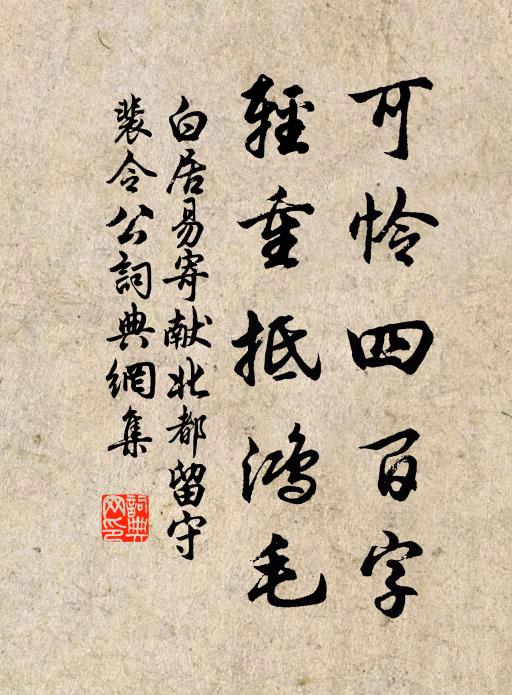 可怜四百字
輕重抵鴻毛
白居易寄献北都留守
裴令公詞典網集
詞典网印